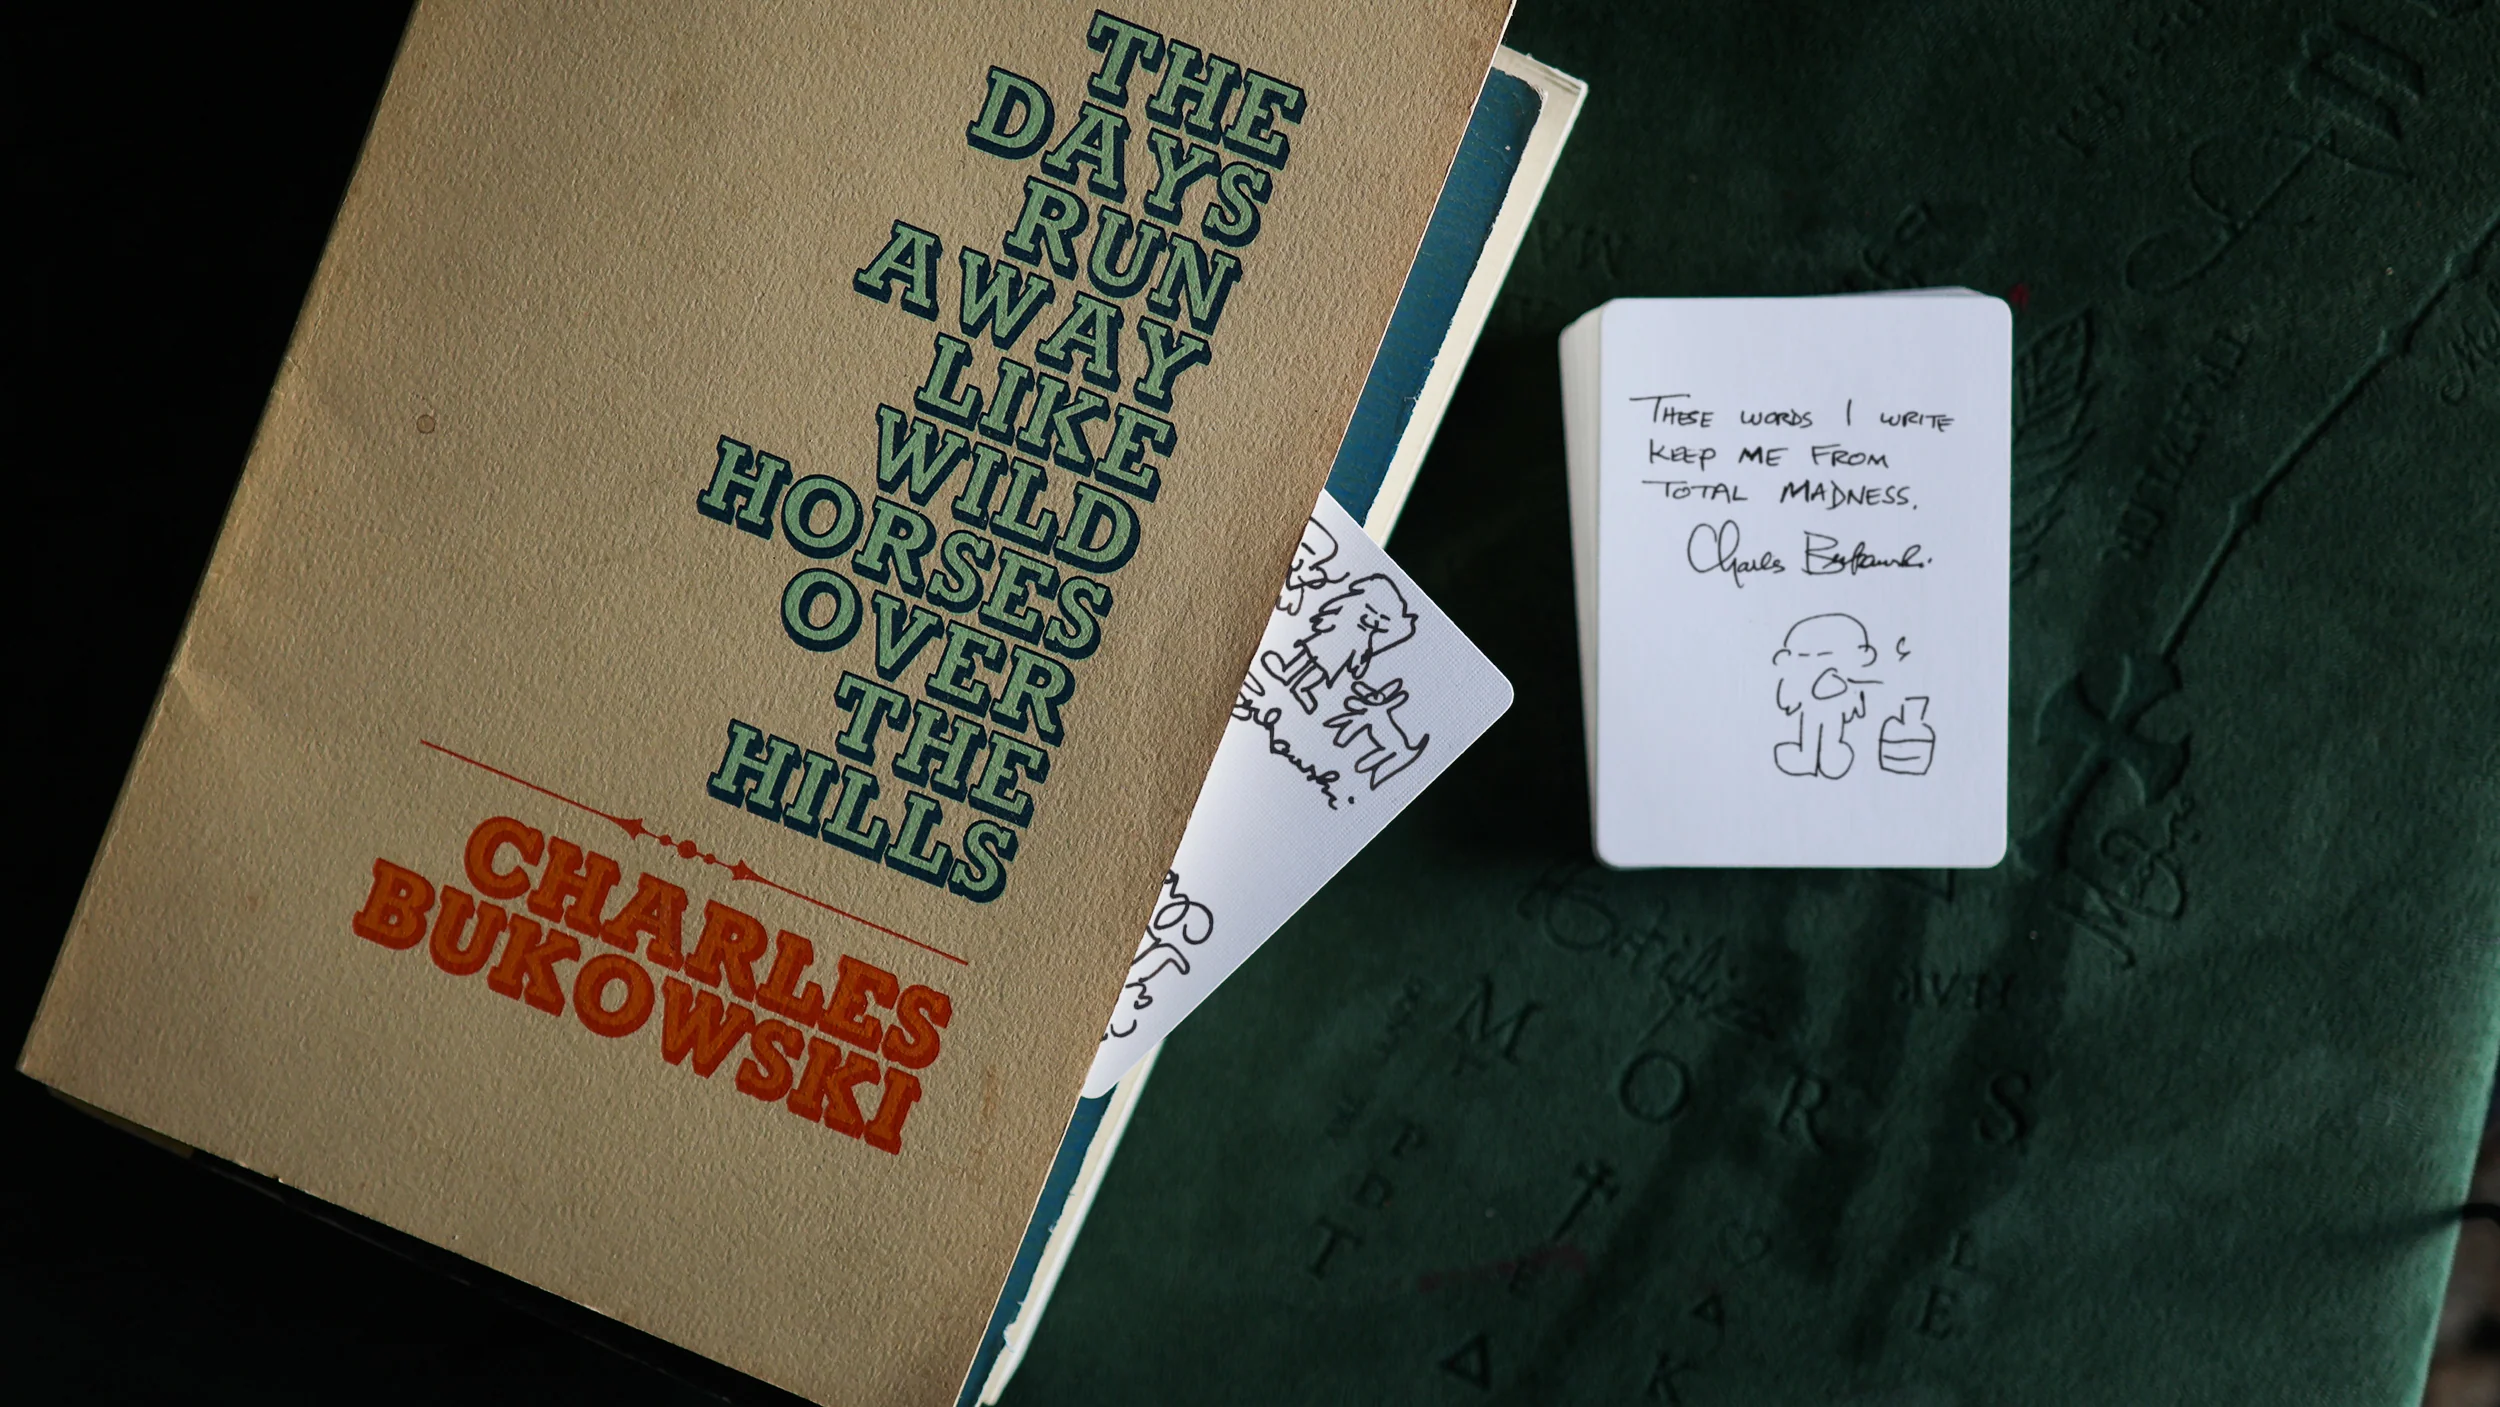 THE
DAYS
RUN
AWAY
LIKE
WILD
HORSES
OVER
THE
HILLS
CHARLES
BUKOWSKI
THESE WORDS I WRITE
KEEP ME FROM
TOTAL MADNESS.
Charles Bukowski.
M O R S